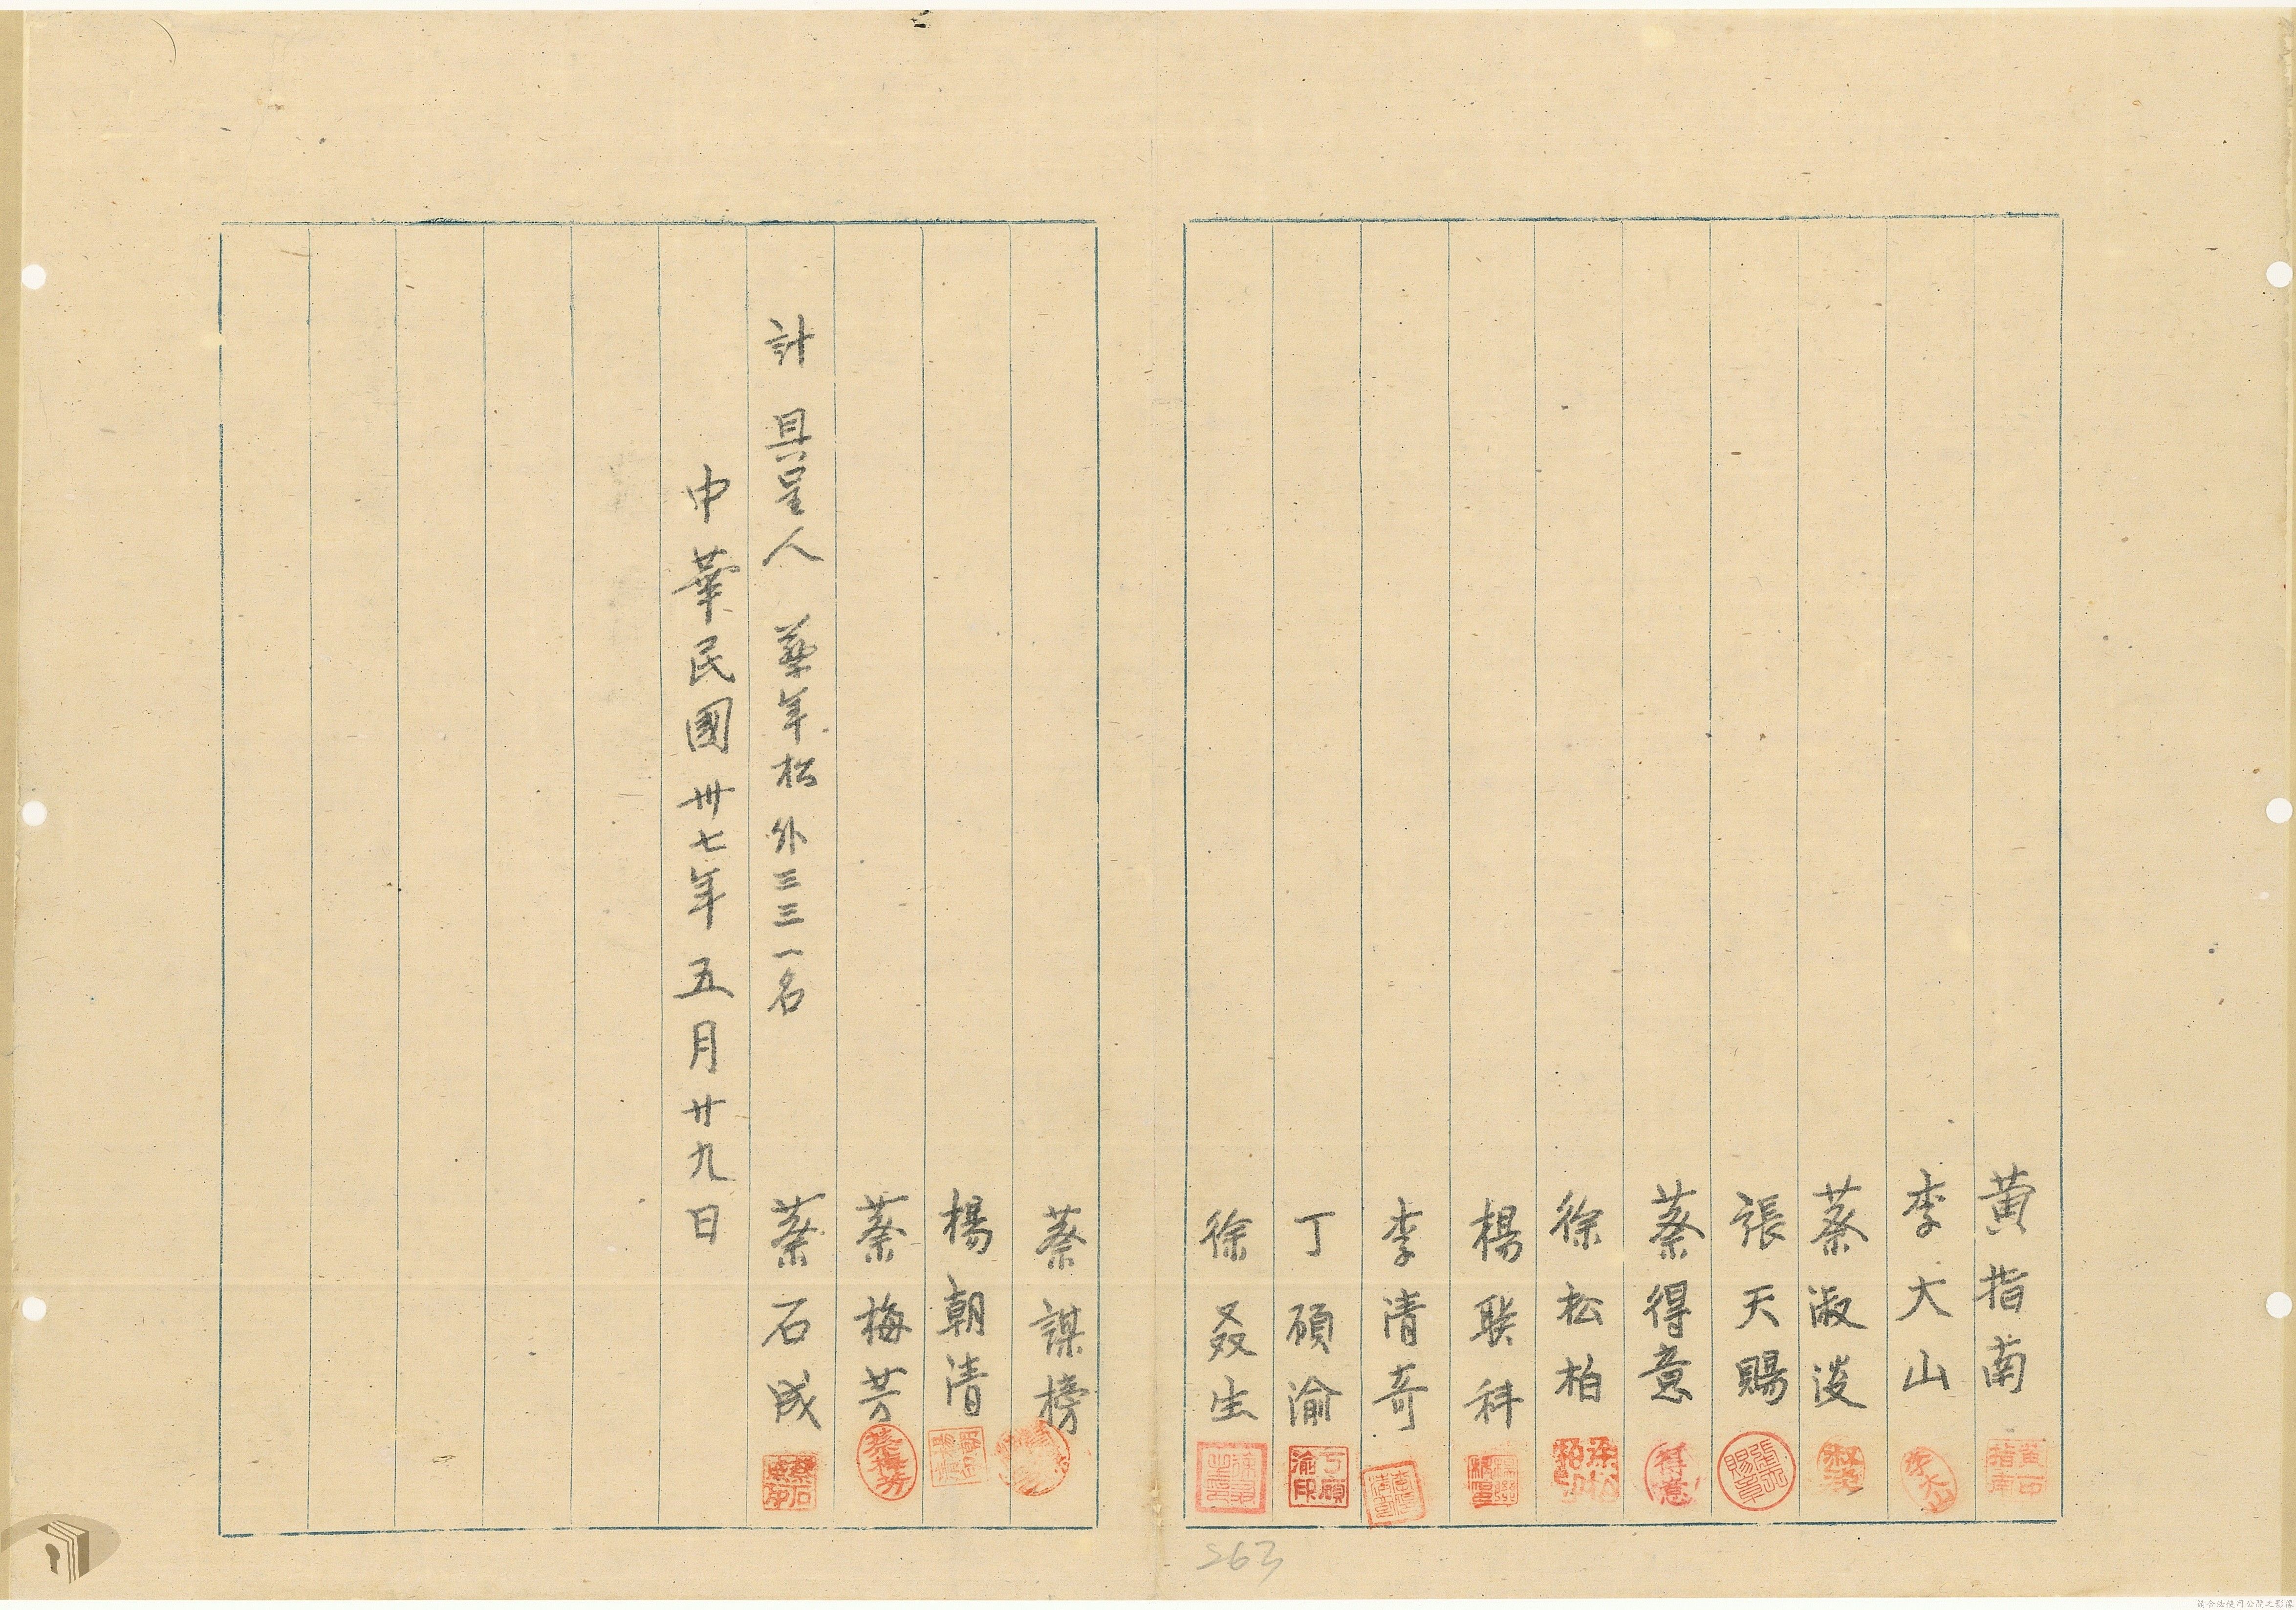 黄指南
李大山
蔡淑
張天賜
蔡得意
徐松柏
楊联科
李清奇
丁碩渝
徐叒生
蔡謀榜
楊朝清
蔡梅芳
計 具呈人 年松 外三三一名 蔡石成
中華民國卅七年五月廿九日
263
請合法使用公開之影像